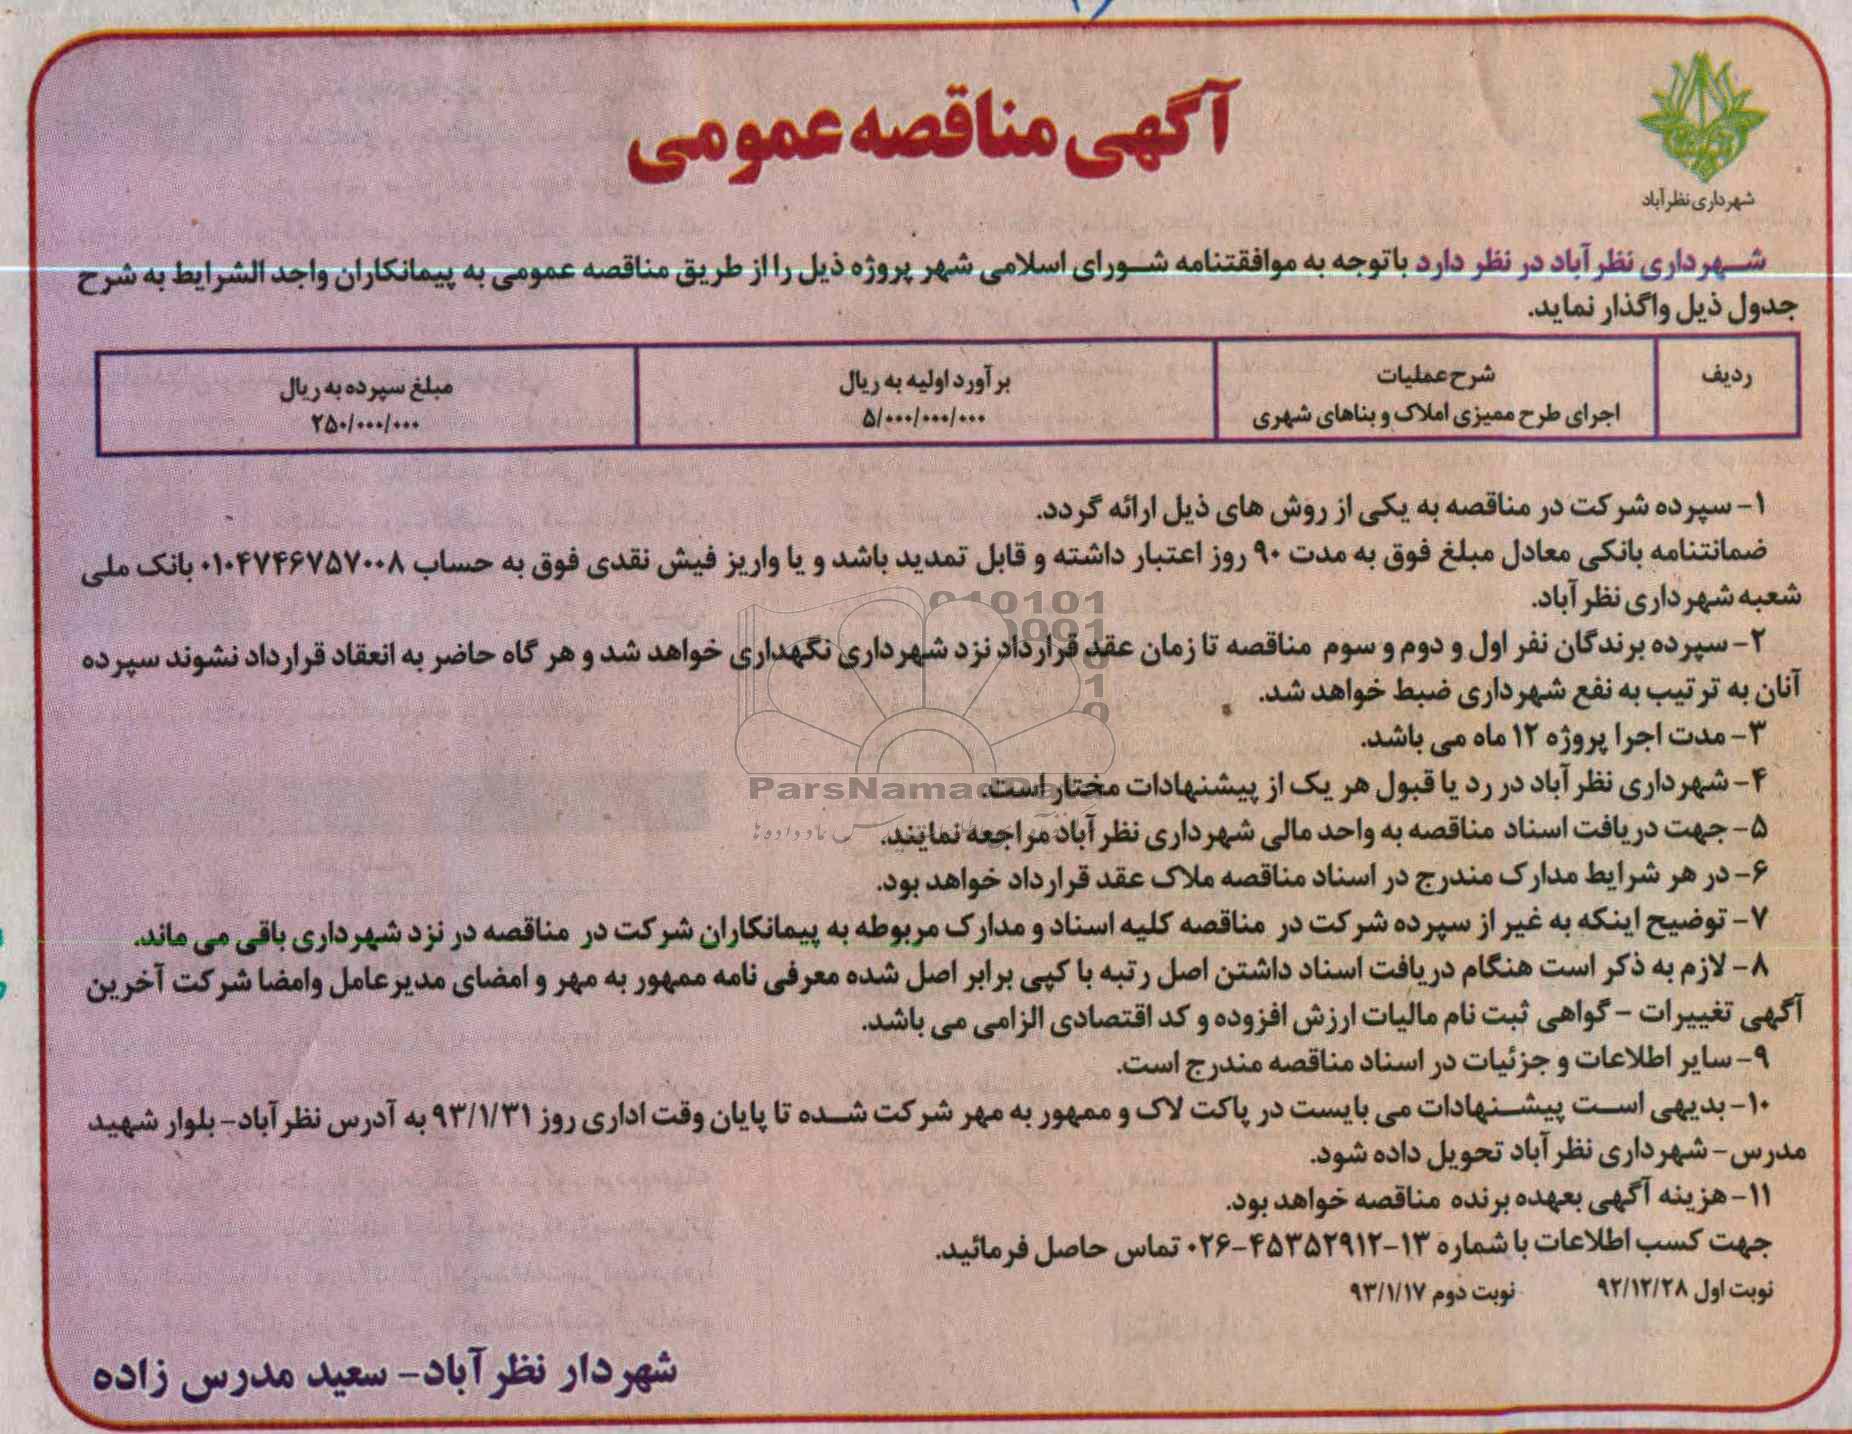 شهرداری نظرآباد
آگهی مناقصه عمومی
شهرداری نظر آباد در نظر دارد باتوجه به موافقتنامه شورای اسلامی شهر پروژه ذیل را از طریق مناقصه عمومی به پیمانکاران واجد الشرایط به شرح
جدول ذیل واگذار نماید.
ردیف شرح عملیات برآورد اولیه به ریال مبلغ سپرده به ریال
اجرای طرح ممیزی املاک و بناهای شهری ۵/۰۰۰/۰۰۰/۰۰۰ ۲۵۰/۰۰۰/۰۰۰
۱- سپرده شرکت در مناقصه به یکی از روش های ذیل ارائه گردد.
ضمانتنامه بانکی معادل مبلغ فوق به مدت ۹۰ روز اعتبار داشته و قابل تمدید باشد و یا واریز فیش نقدی فوق به حساب ۰۱۰۴۷۴۶۷۵۷۰۰۸ بانک ملی
شعبه شهرداری نظر آباد.
۲- سپرده برندگان نفر اول و دوم و سوم مناقصه تا زمان عقد قرارداد نزد شهرداری نگهداری خواهد شد و هر گاه حاضر به انعقاد قرارداد نشوند سپرده
آنان به ترتیب به نفع شهرداری ضبط خواهد شد.
۳- مدت اجرا پروژه ۱۲ ماه می باشد.
۴- شهرداری نظر آباد در رد یا قبول هر یک از پیشنهادات مختار است.
ParsNamadData
۵- جهت دریافت اسناد مناقصه به واحد مالی شهرداری نظر آباد مراجعه نمایند.
۶- در هر شرایط مدارک مندرج در اسناد مناقصه ملاک عقد قرارداد خواهد بود.
۷- توضیح اینکه به غیر از سپرده شرکت در مناقصه کلیه اسناد و مدارک مربوطه به پیمانکاران شرکت در مناقصه در نزد شهرداری باقی می ماند.
۸- لازم به ذکر است هنگام دریافت اسناد داشتن اصل رتبه با کپی برابر اصل شده معرفی نامه ممهور به مهر و امضای مدیرعامل وامضا شرکت آخرین
آگهی تغییرات - گواهی ثبت نام مالیات ارزش افزوده و کد اقتصادی الزامی می باشد.
۹- سایر اطلاعات و جزئیات در اسناد مناقصه مندرج است.
۱۰- بدیهی است پیشنهادات می بایست در پاکت لاک و ممهور به مهر شرکت شده تا پایان وقت اداری روز ۹۳/۱/۳۱ به آدرس نظر آباد- بلوار شهید
مدرس- شهرداری نظر آباد تحویل داده شود.
۱۱- هزینه آگهی بعهده برنده مناقصه خواهد بود.
جهت کسب اطلاعات با شماره ۱۳-۴۵۳۵۲۹۱۲-۰۲۶ تماس حاصل فرمائید.
نوبت اول ۹۲/۱۲/۲۸ نوبت دوم ۹۳/۱/۱۷
شهردار نظر آباد- سعید مدرس زاده